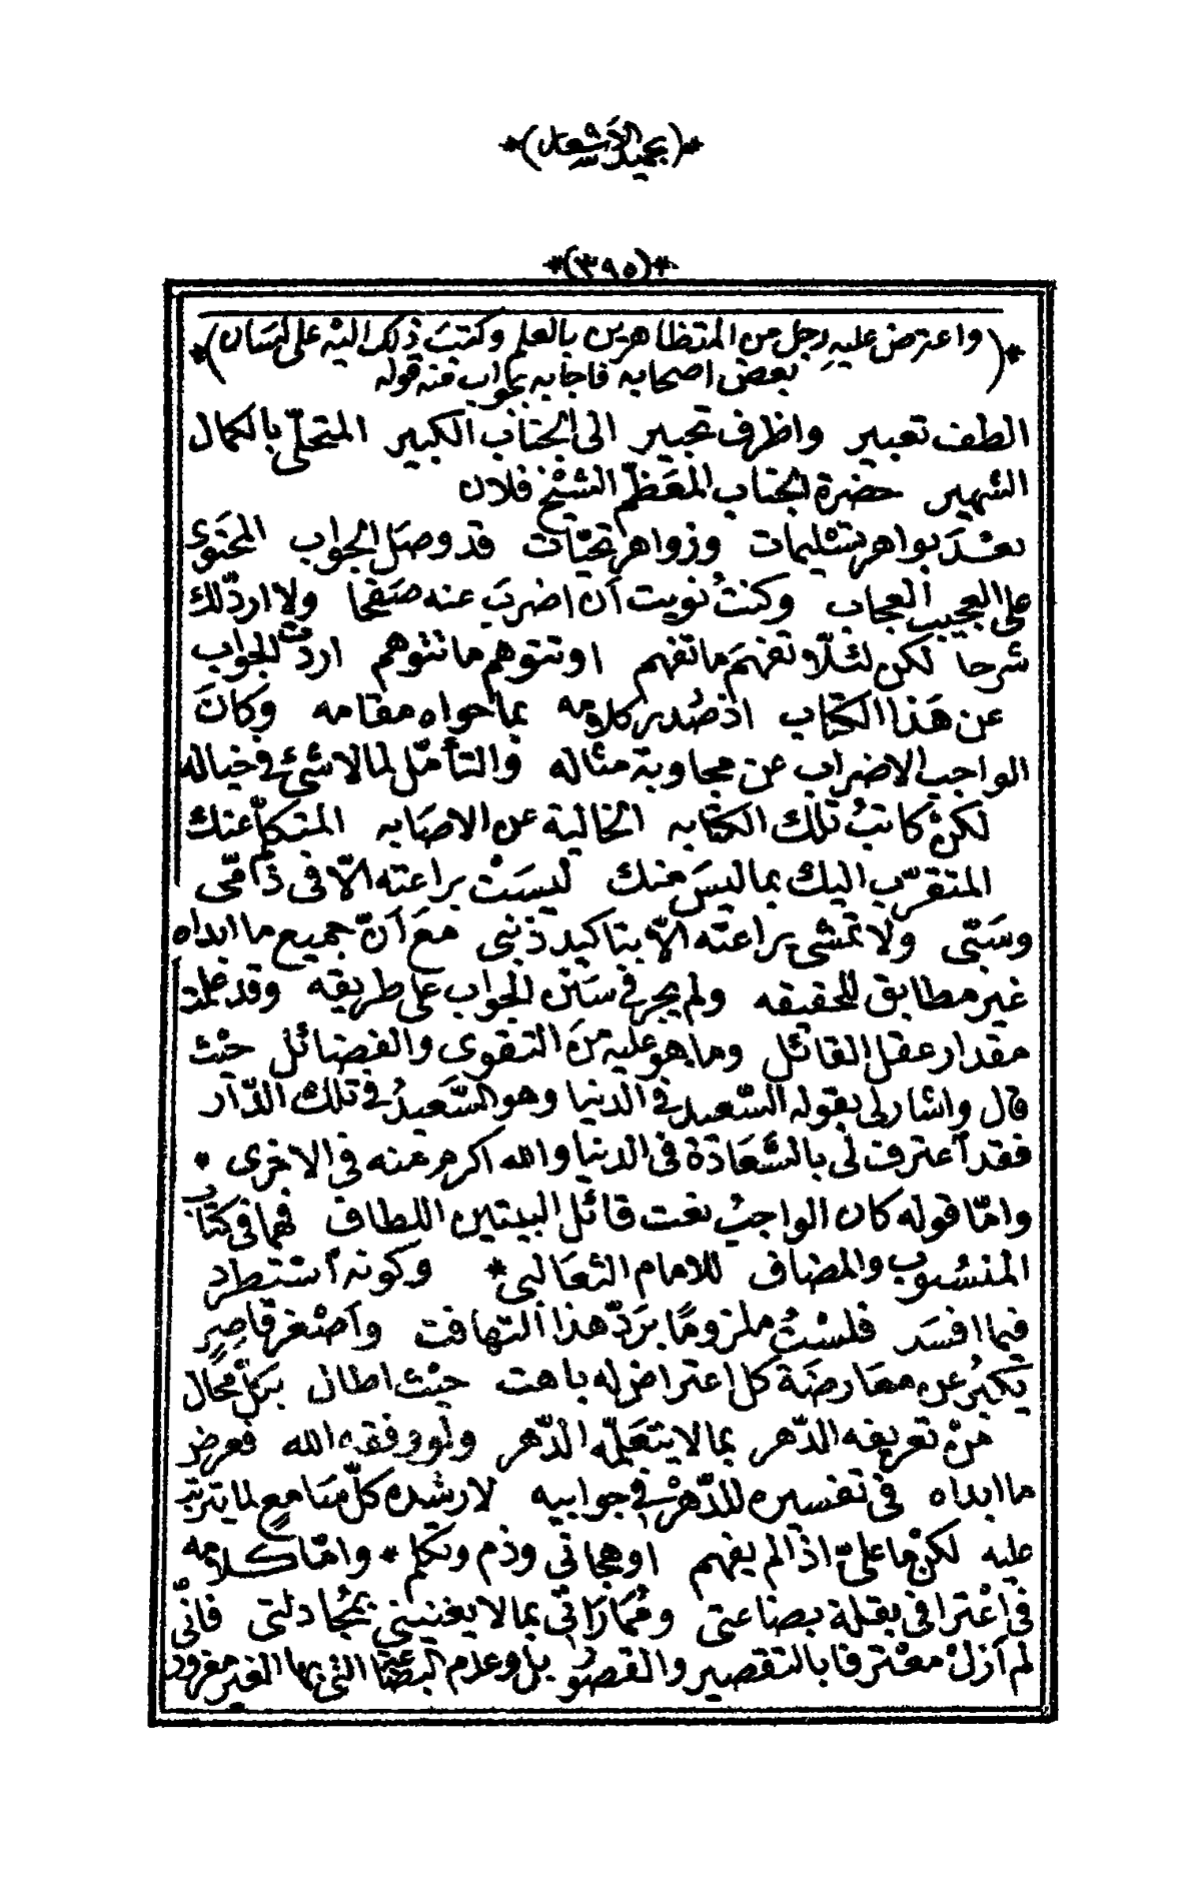 *(بحميد الأشعار)*
*(٣٩٥)*
*(واعترض عليه رجل من المتظاهرين بالعلم وكتب ذلك اليه على لسان)*
بعض اصحابه فاجابه بجواب منه قوله
الطف تعبير واظرف تحبير الى الجناب الكبير المتحلّي بالكمال
الشهير حضرة الجناب المعظّم الشيْخ فلان
بعْدَ بواهر تسْليمات وزواهر تحيّات قد وصَل الجواب المحتوَى
على العجيب العجاب وكنتُ نويت أن اضربَ عنه صَفْحا ولا اردّلك
شرحا لكن لئلّا تفهمَ ما تفهم او تتوهم ما تتوهم اردْت الجواب
عن هَذا الكتاب اذ صُدر كلامه بما حواه مقامه وَكانَ
الواجب الاضراب عن مجاوبة مثاله والتأمّل لما لا شئ في خياله
لكنْ كاتبُ تلك الكتابه الخالية عن الاصَابه المتكلّم عنك
المتقرّب اليك بما ليسَ منك ليسَتْ براعته الّا في ذامّى
وسَبّى ولا تمشى يراعته الّا بتاكيد ذنبى معَ أنّ جميع ما ابداه
غير مطابق للحقيقه ولم يجر في سَنَن الجواب على طريقه وقد علمت
مقدار عقل القائل وما هو عليه منَ التقوى والفضائل حيْث
قال واشار لى بقوله السّعيد في الدنيا وهو السَّعيدُ في تلك الدّار
فقد أعترف لى بالسَّعَادة في الدنيا والله اكرم منه في الاخرى *
وامّا قوله كان الواجبُ نعت قائل البيتين اللطاف فهما في كتاب
المنسُوب والمضاف للامام الثعَالبي * وكونه أستطرد
فيما افسَد فلسْتُ ملزومًا بَردّ هذا التهافت وأصْغر قاصِرٍ
يَكبُر عن معارضَة كل اعتراض له باهت حيْث اطال بكلّ محَال
منْ تعريفه الدّهر بما لا يتعَلّمه الدّهر ولو وفقه الله فعرض
ما ابداه في تفسيره للدّهرْ في جوابيه لارشده كلّ سَامعٍ لما يترتب
عليه لكنْ ما علىّ اذا لم يفهم او هجاني وذم وتكلم * وامّا كلامه
في اعْترافي بقلة بضاعتى ومُمَاراتي بما لا يغنيني بمُجادلتى فانّى
لم أزلْ معْترفا بالتقصير والقصُور بل وعدم البضاعة التى بها الغير مغرور